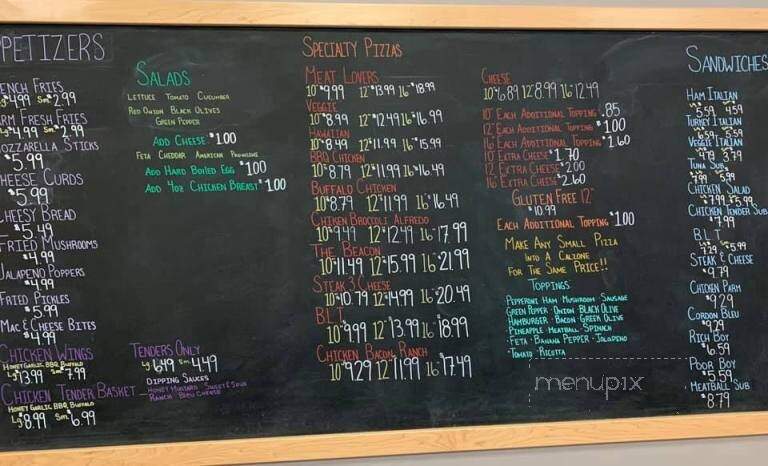 PPETIZERS
ENCH FRIES
Lg $4.99 Sm $2.99
ARM FRESH FRIES
Lg $4.99 Sm $2.99
OZZARELLA STICKS
$5.99
HEESE CURDS
$5.99
HEESY BREAD
$5.49
FRIED MUSHROOMS
$4.99
JALAPENO POPPERS
$4.99
FRIED PICKLES
$5.99
MAC & CHEESE BITES
$4.99
CHICKEN WINGS
HONEY GARLIC BBQ BUFFALO
Lg $13.99 Sm $7.99
CHICKEN TENDER BASKET
HONEY GARLIC BBQ BUFFALO
Lg $8.99 Sm $6.99
SALADS
LETTUCE TOMATO CUCUMBER
RED ONION BLACK OLIVES
GREEN PEPPER
ADD CHEESE $1.00
FETA CHEDDAR AMERICAN PROVOLONE
ADD HARD BOILED EGG $1.00
ADD 4OZ CHICKEN BREAST $1.00
TENDERS ONLY
Lg $6.49 Sm $4.49
DIPPING SAUCES
HONEY MUSTARD SWEET & SOUR
RANCH BLEU CHEESE
SPECIALTY PIZZAS
MEAT LOVERS
10" $9.99 12" $13.99 16" $18.99
VEGGIE
10" $8.99 12" $12.49 16" $16.99
HAWAIIAN
10" $8.49 12" $11.99 16" $15.99
BBQ CHICKEN
10" $8.79 12" $11.99 16" $16.49
BUFFALO CHICKEN
10" $8.79 12" $11.99 16" $16.49
CHICKEN BROCCOLI ALFREDO
10" $9.49 12" $12.49 16" $17.99
THE BEACON
10" $11.49 12" $15.99 16" $21.99
STEAK 3 CHEESE
10" $10.79 12" $14.99 16" $20.49
B.L.T.
10" $9.99 12" $13.99 16" $18.99
CHICKEN BACON RANCH
10" $9.29 12" $11.99 16" $17.49
CHEESE
10" $6.89 12" $8.99 16" $12.49
10" EACH ADDITIONAL TOPPING $.85
12" EACH ADDITIONAL TOPPING $1.00
16" EACH ADDITIONAL TOPPING $1.60
10" EXTRA CHEESE $1.70
12" EXTRA CHEESE $2.00
16" EXTRA CHEESE $2.60
GLUTEN FREE 12"
$10.99
EACH ADDITIONAL TOPPING $1.00
MAKE ANY SMALL PIZZA
INTO A CALZONE
FOR THE SAME PRICE!!
TOPPINGS
PEPPERONI HAM MUSHROOM SAUSAGE
GREEN PEPPER ONION BLACK OLIVE
HAMBURGER BACON GREEK OLIVE
PINEAPPLE MEATBALL SPINACH
FETA BANANA PEPPER JALAPENO
TOMATO RICOTTA
SANDWICHES
HAM ITALIAN
5.59 4.59
TURKEY ITALIAN
VEGGIE ITALIAN
4.79 3.79
TUNA SUB
CHICKEN SALAD
$7.99 $5.99
CHICKEN TENDER SUB
$7.99
B.L.T
7.29 5.99
STEAK & CHEESE
$9.79
CHICKEN PARM
$9.29
CORDON BLEU
$9.29
RICH BOY
$6.59
POOR BOY
$5.59
MEATBALL SUB
$8.79
menupix